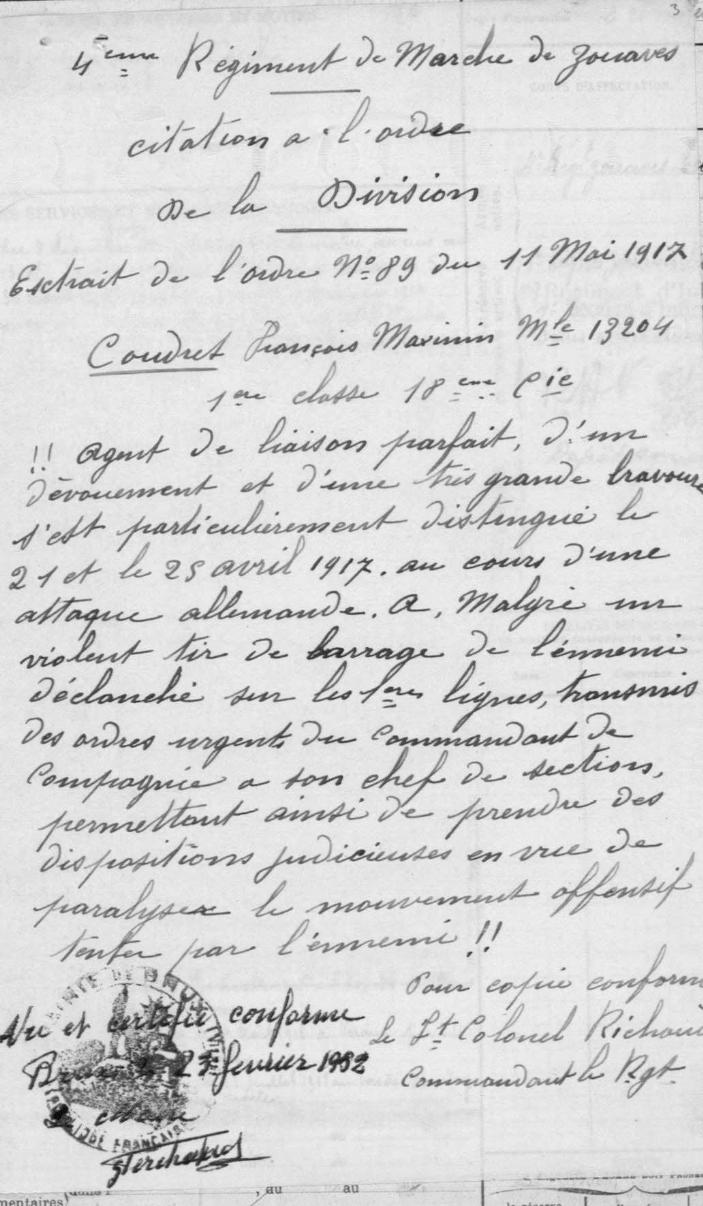 3
4eme Régiment de Marche de Zouaves
citation a l'ordre
De la Division
Extrait de l'ordre No 89 du 11 Mai 1917
Coudret François Maximin Mle 13204
1ere classe 18eme Cie
!! Agent de liaison parfait, d'un
dévouement et d'une très grande bravoure
s'est particulièrement distingué le
21 et le 25 avril 1917. au cours d'une
attaque allemande. A, Malgré un
violent tir de barrage de l'énnemi
déclanché sur les 1eres lignes, transmis
des ordres urgents du Commandant de
Compagnie a son chef de section,
permettant ainsi de prendre des
dispositions judicieuses en vue de
paralyser le mouvement offensif
tenter par l'énnemi !!
Pour copie conforme
Le Lt Colonel
Commandant le Rgt
Vu et certifié conforme
février 1932
Le Maire
MAIRIE DE
FRANÇAISE
, au au